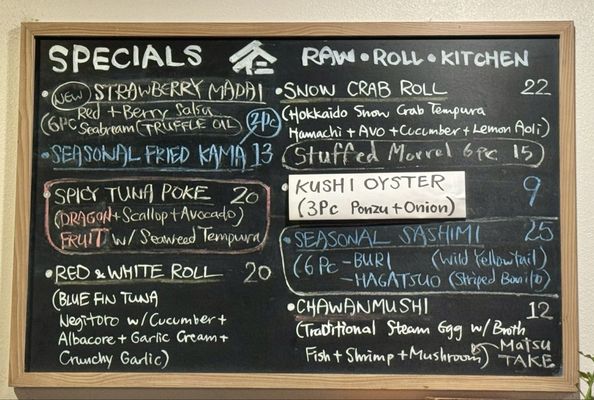 SPECIALS
NEW STRAWBERRY MADAI
(6Pc Red + Berry Salsa
Seabream (TRUFFLE OIL)
2Pc
SEASONAL FRIED KAMA 13
SPICY TUNA POKE 20
(DRAGON + Scallop + Avocado)
FRUIT w/ Seaweed Tempura
RED & WHITE ROLL 20
(BLUE FIN TUNA
Negitoro w/ Cucumber +
Albacore + Garlic Cream +
Crunchy Garlic)
RAW • ROLL • KITCHEN
SNOW CRAB ROLL 22
(Hokkaido Snow Crab Tempura
Hamachi + Avo + Cucumber + Lemon Aoli)
Stuffed Morrel 6pc 15
KUSHI OYSTER 9
(3Pc Ponzu + Onion)
SEASONAL SASHIMI 25
(6 Pc - BURI (Wild Yellowtail)
- HAGATSUO (Striped Bonito)
CHAWANMUSHI 12
(Traditional Steam Egg w/ Broth
Fish + Shrimp + Mushroom)
MATSU
TAKE